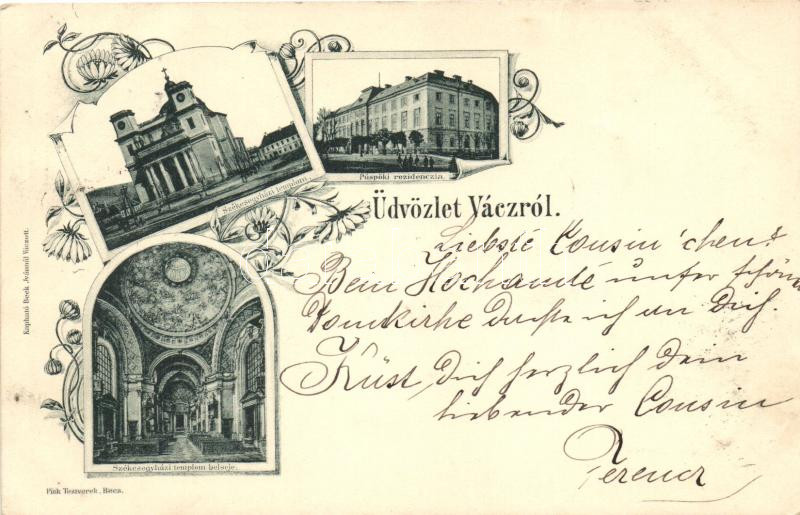 Székesegyházi templom.
Püspöki rezidenczia.
Üdvözlet Váczról.
Liebste Cousin'chen!
Beim Hochamte unser schöne
Domkirhe dachte ich an Dich.
Küst Dich herzlich dein
liebender Cousin
Ferencz
Székesegyházi templom belseje.
Kapható Beck Jván Váczott.
Pink Testverek, Bécs.